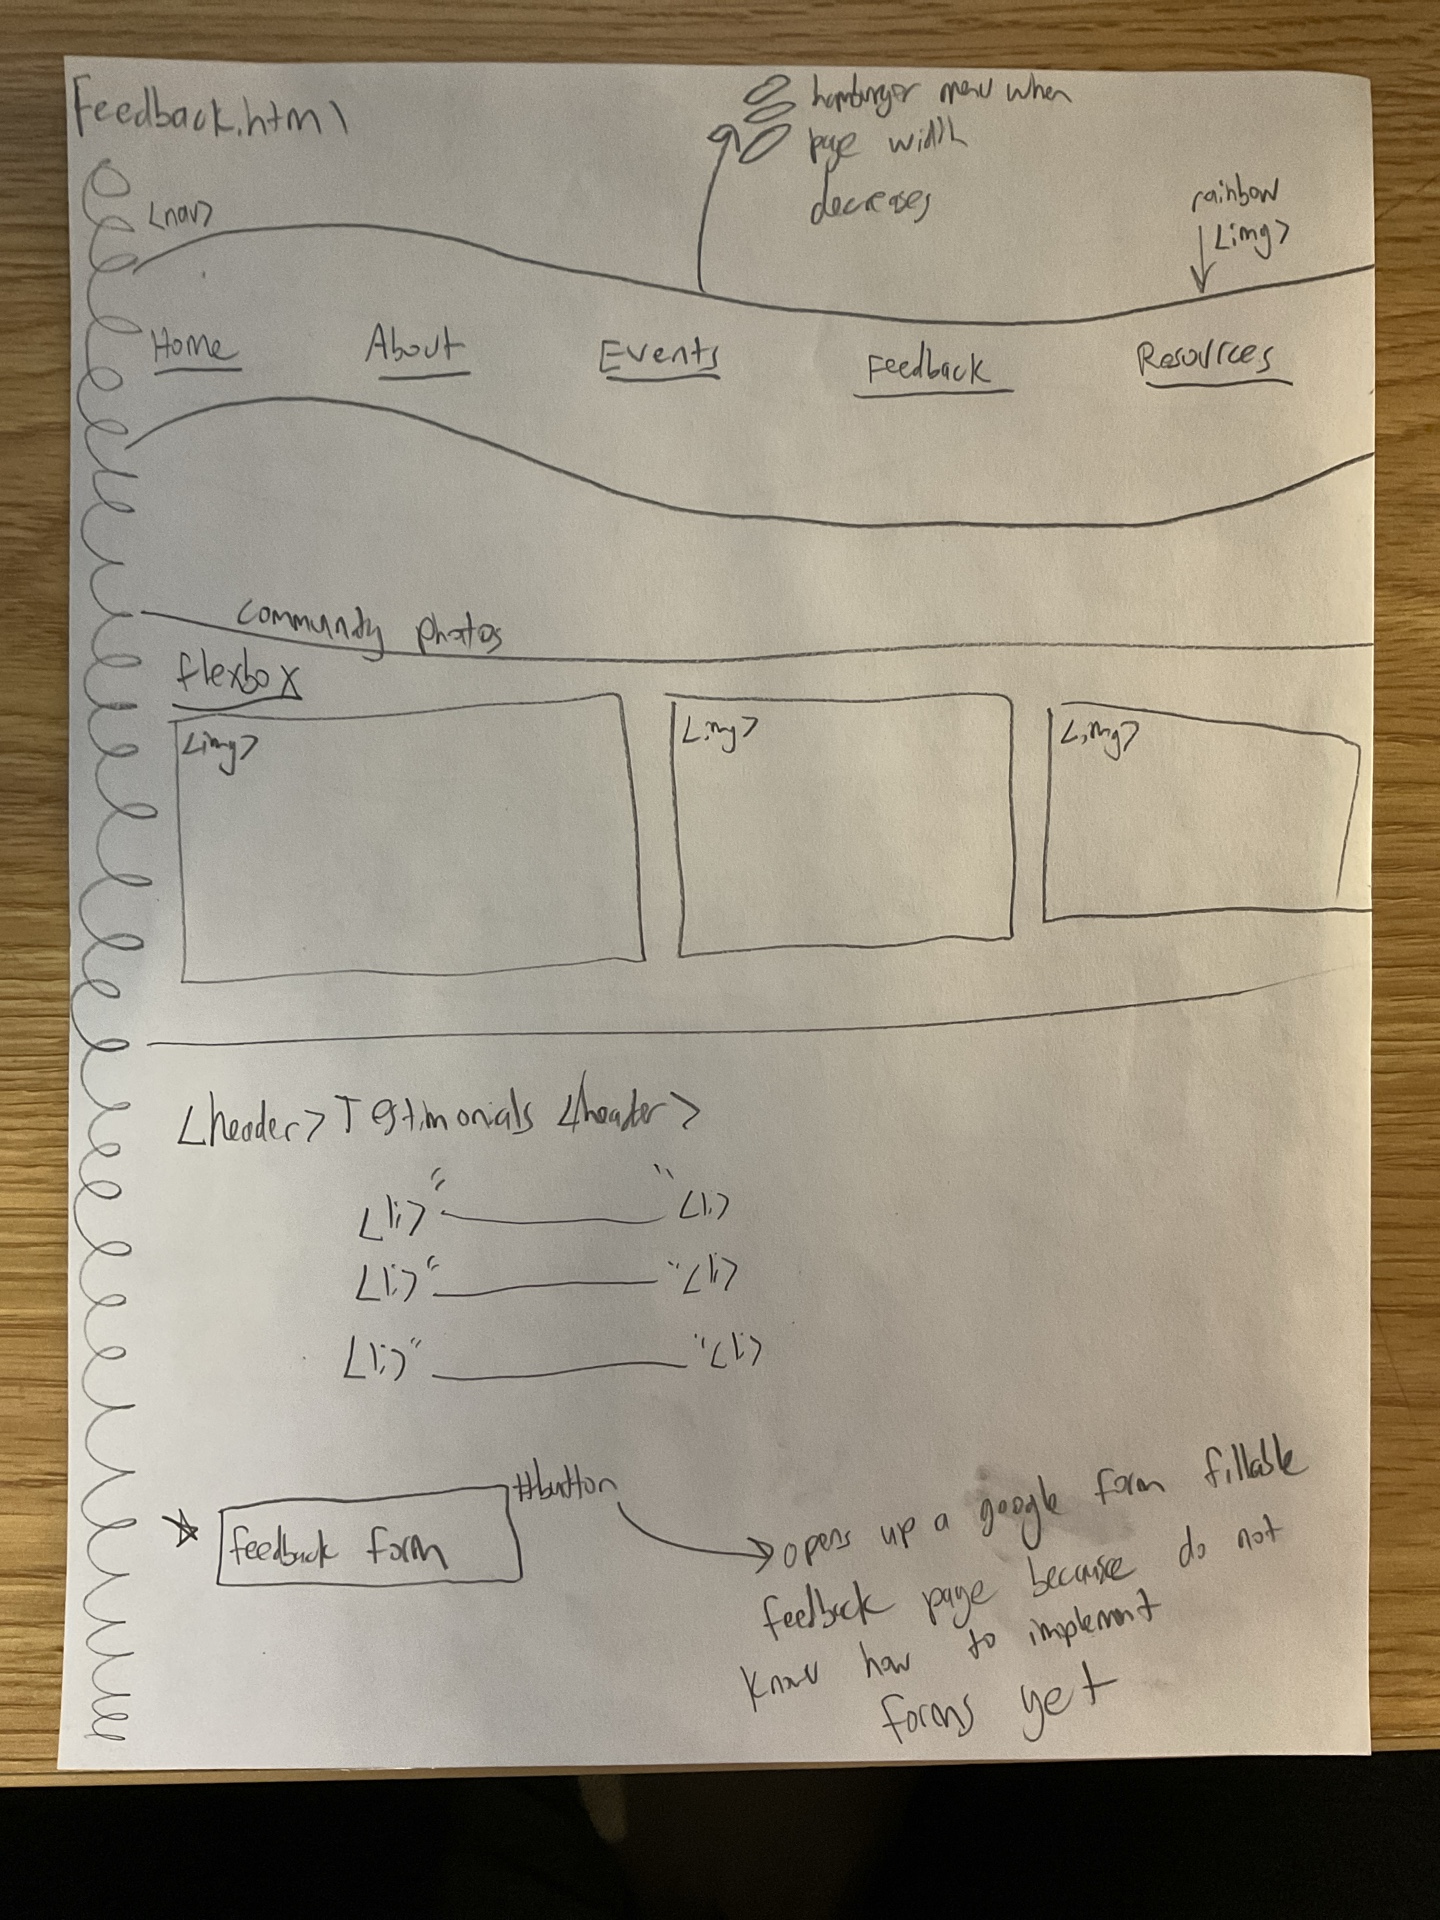 Feedback.html
hamburger menu when
page width
decreases
<nav>
rainbow
<img>
Home About Events Feedback Resources
community photos
flexbox
<img> <img> <img>
<header> Testimonials </header>
<li> " " <li>
<li> " " <li>
<li> " " <li>
#button
feedback form
opens up a google form fillable
feedback page because do not
know how to implement
forms yet